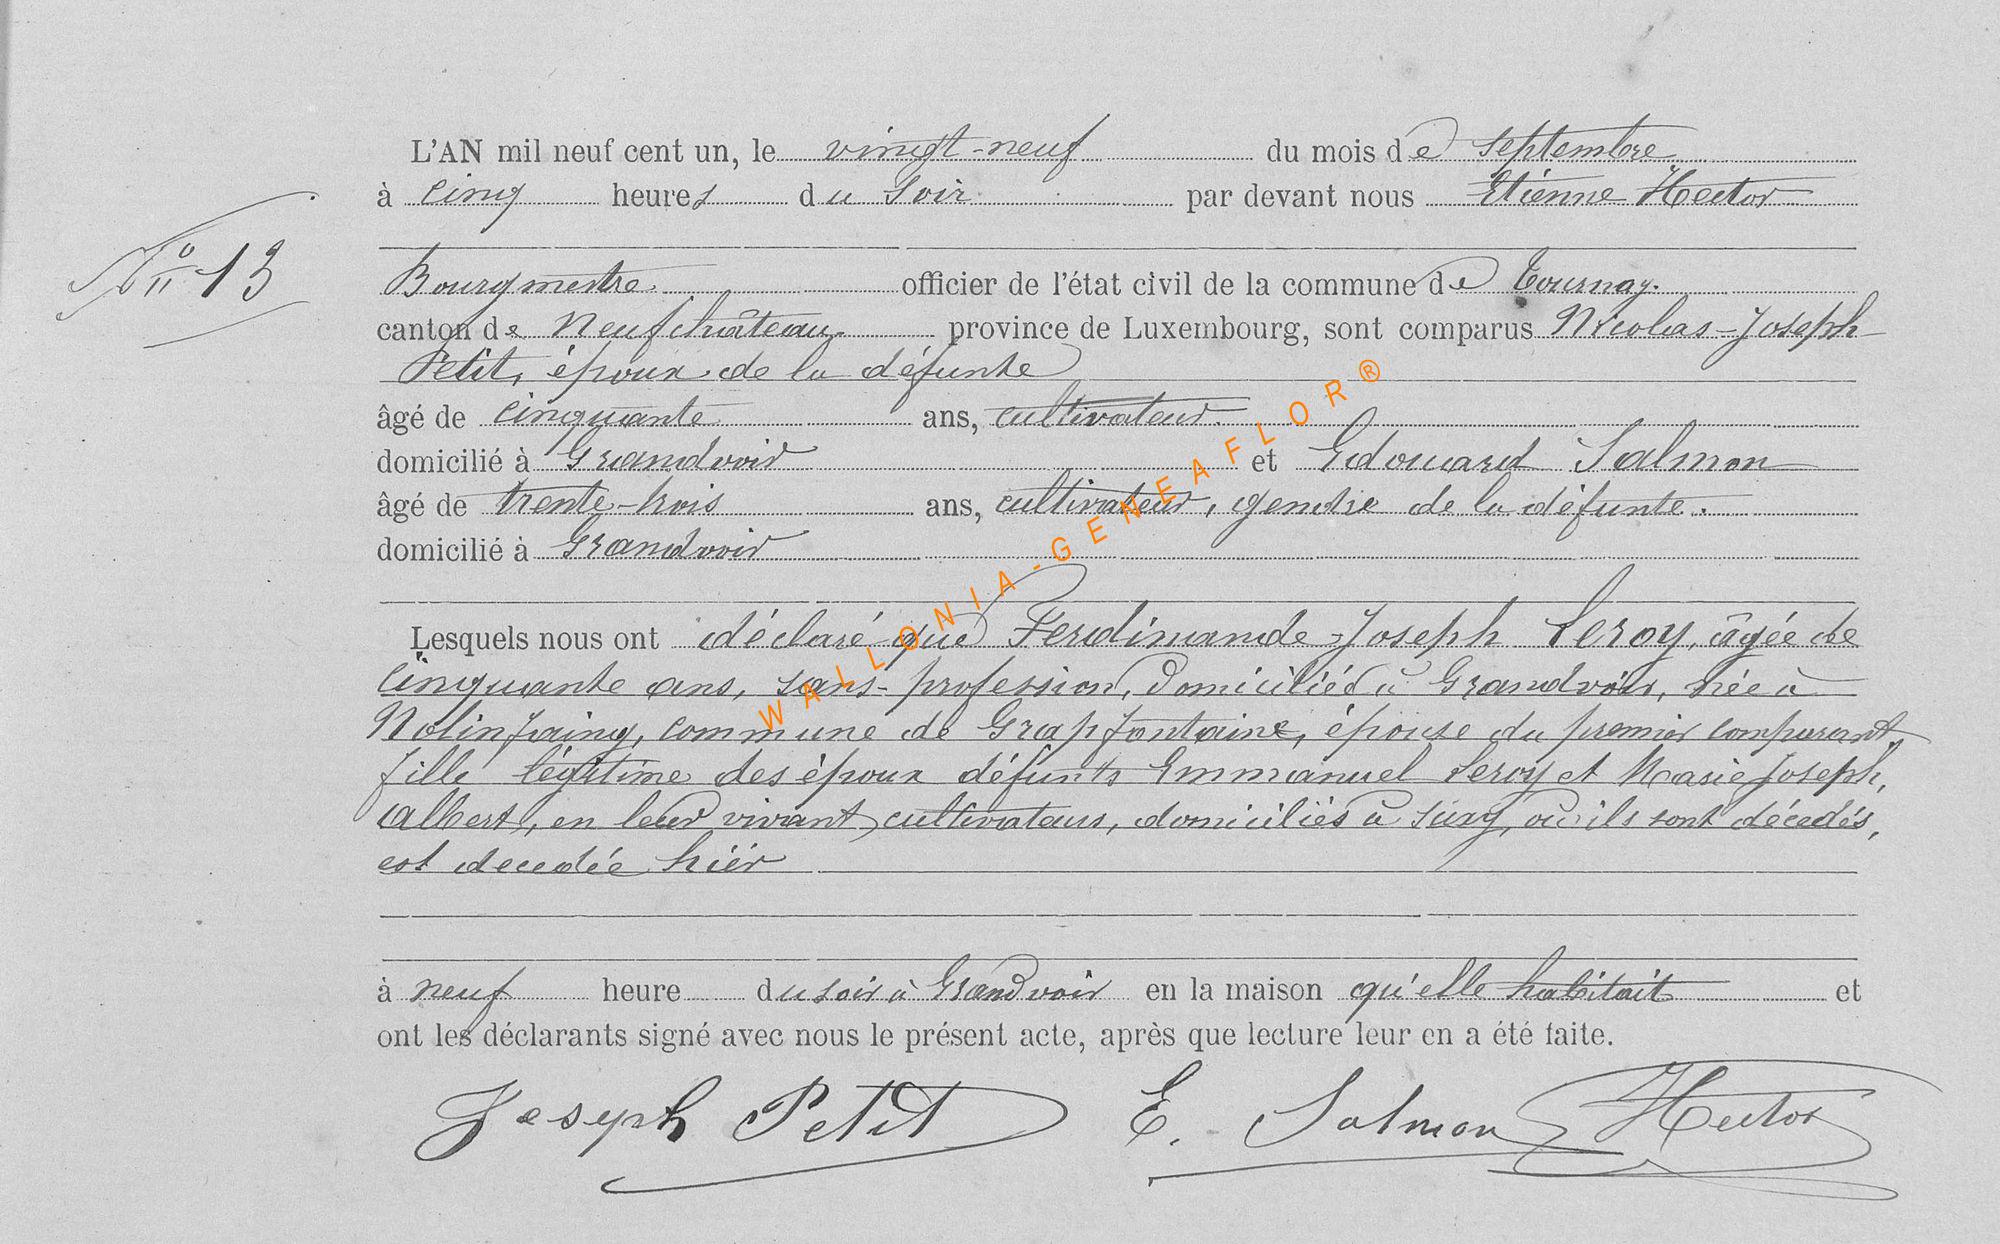 L'AN mil neuf cent un, le vingt-neuf du mois de septembre
à cinq heures du soir par devant nous Etienne Hector
N° 13
Bourgmestre officier de l'état civil de la commune de Tournay.
canton de Neufchâteau. province de Luxembourg, sont comparus Nicolas-Joseph
Petit, époux de la défunte
âgé de cinquante ans, cultivateur.
domicilié à Grandvoir et Edouard Salmon
âgé de trente-trois ans, cultivateur, gendre de la défunte.
domicilié à Grandvoir
Lesquels nous ont déclaré que Ferdinande-Joseph Leroy, âgée de
cinquante ans, sans-profession, domiciliée à Grandvoir, née à
Nolinfaing, commune de Grapfontaine, épouse du premier comparant
fille légitime des époux défunts Emmanuel Leroy et Marie Joseph,
Albert, en leur vivant, cultivateurs, domiciliés à Suxy, où ils sont décédés,
est decedée hier
à neuf heure du soir à Grandvoir en la maison qu'elle habitait et
ont les déclarants signé avec nous le présent acte, après que lecture leur en a été faite.
Joseph Petit E. Salmon Hector
WALLONIA-GENEAFLOR®